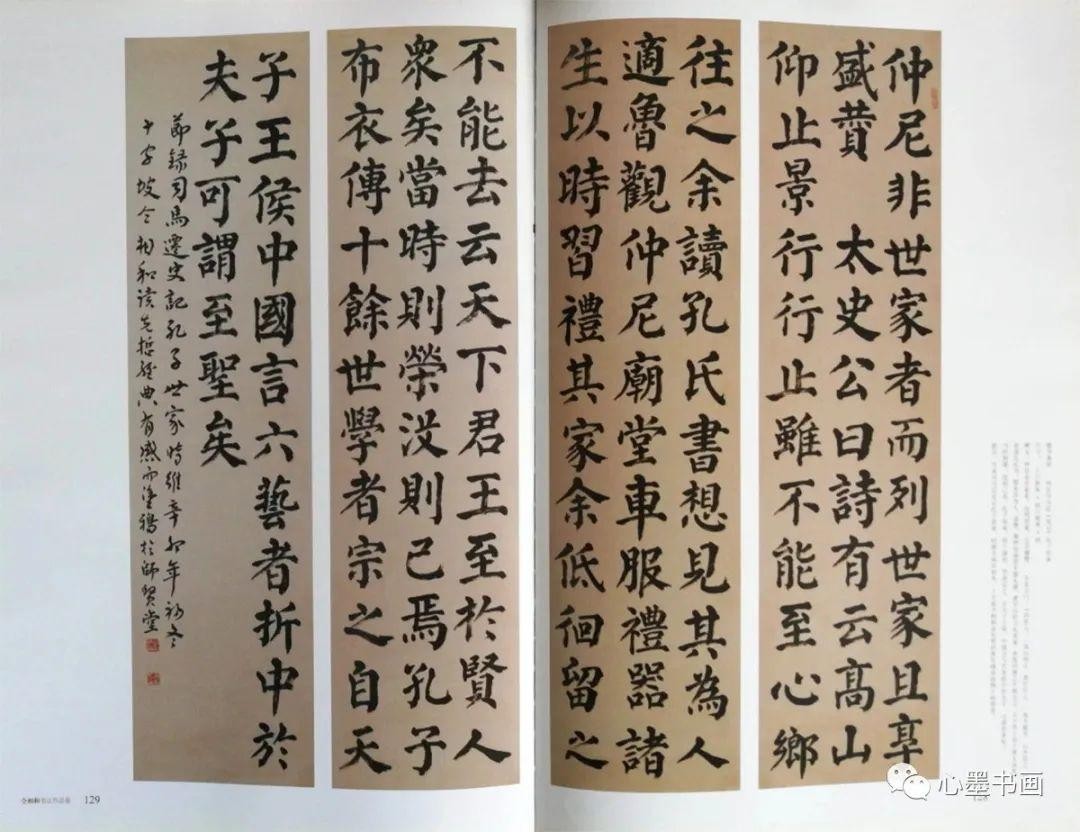 仲尼非世家者而列世家且享
盛贊 太史公曰詩有云高山
仰止景行行止雖不能至心鄉
往之余讀孔氏書想見其為人
適魯觀仲尼廟堂車服禮器諸
生以時習禮其家余低徊留之
不能去云天下君王至於賢人
衆矣當時則榮沒則已焉孔子
布衣傳十餘世學者宗之自天
子王侯中國言六藝者折中於
夫子可謂至聖矣
節録司馬遷史記孔子世家時維辛卯年初冬
十字坡仝相和读先哲經典有感而塗鴉於師賢堂
129
心墨书画